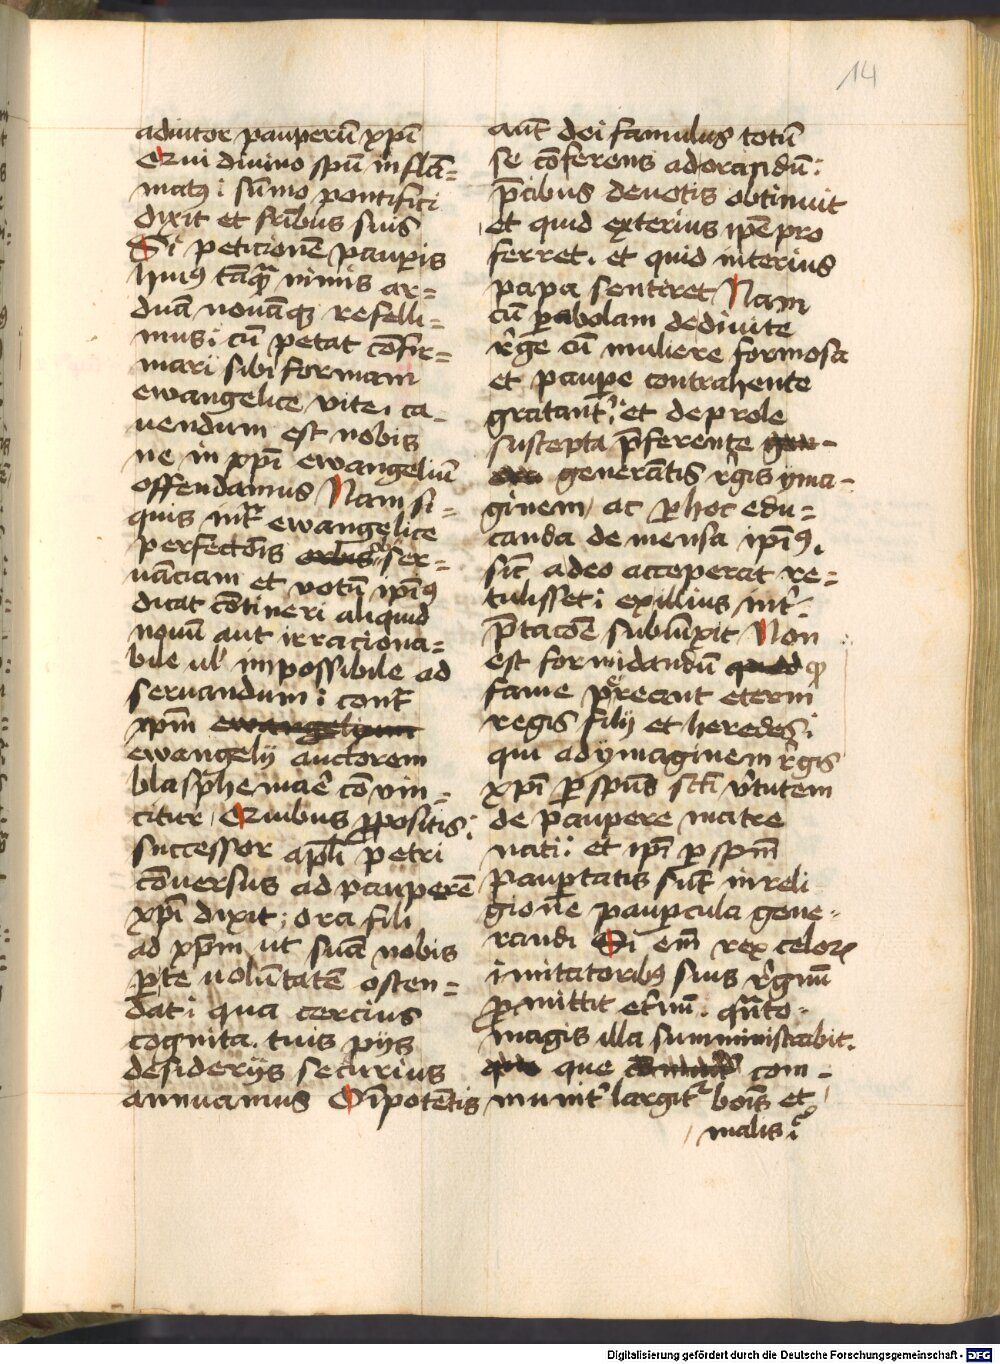 14
adiutor pauperū xpī
Qui diuino spū inflā=
matꝯ i sūmo pontifici
dixit et frībus suis
Si peticionē paupis
huiꝯ tāꝗ nimis ar=
duā nouāqꝫ refelli=
mus i cū petat cōfir=
mari sibi formam
ewangelice vite i ca-
uendum est nobis
ne in xpī ewangeliū
offendamus Nam si-
quis intᷓ ewangelice
perfectōis ser=
uāciam et votū ipīꝯ
dicat cōtineri aliquid
nouū aut irraciona=
bile ul̕ impossibile ad
seruandum i cont̄
xpm̄ ewangelium
ewangelij auctorem
blasphemaē cōuin=
citur Quibus ꝓpositis i
successor apl̄i petri
cōuersus ad pauperē
xpī dixit ; ora fili
ad xpm̄ ut suā nobis
ꝑte uolūtatē osten=
dat i qua cercius
cognita . tuis pijs
desiderijs securius
annuamus Oīpotētis
aut̄ dei famulus totū
se cōferens ad orandū :
p̄cibus deuotis obtinuit
et quid exterius ipē pro
ferret . et quid interius
papa sentiret Nam
cū ꝑabolam de diuite
r̕ge cū muliere formosa
et paupe contrahente
gratant̕ i et de prole
suscepta p̄ferente gen-
generātis r̕gis yma-
ginem ac ꝑ hoc edu=
canda de mensa ipīꝯ .
sic̄ adeo acceperat re=
tulisset i ex illius int̕-
p̄tacōē sublūxit Non
est formidandū quod ꝙ
fame pereant eterni
regis filij et heredes i
qui ad ymaginem r̕gis
xpī ꝑ spūs sc̄ti v̕tutem
de paupere matre
nati i et ipī ꝑ spm̄
paupertatis sūt in reli
gione paupcula gene-
randi Si em̄ rex celoꝝ
imitatoribꝯ suis r̕gnū
ꝑmittit et̕nū . qūto-
magis illa summinist̕abit .
que com=
munit̕ largit̕ bonis et
malis i
Digitalisierung gefördert durch die Deutsche Forschungsgemeinschaft - DFG